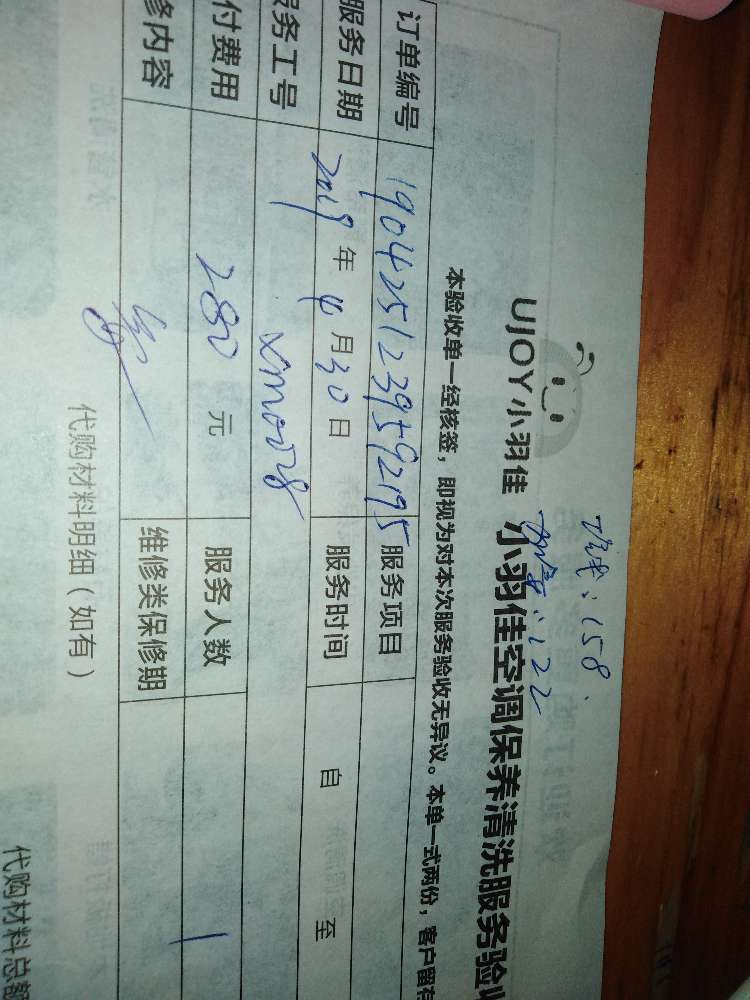 清洗：158.
加氟：122
UJOY小羽佳 小羽佳空调保养清洗服务验
本验收单一经核签，即视为对本次服务验收无异议。本单一式两份，客户留存
订单编号 190425123959295 服务项目
服务日期 2019年4月30日 服务时间 自 至
务工号 xm0028
付费用 280元 服务人数 1
修内容 维修类保修期
代购材料明细（如有）
代购材料总额